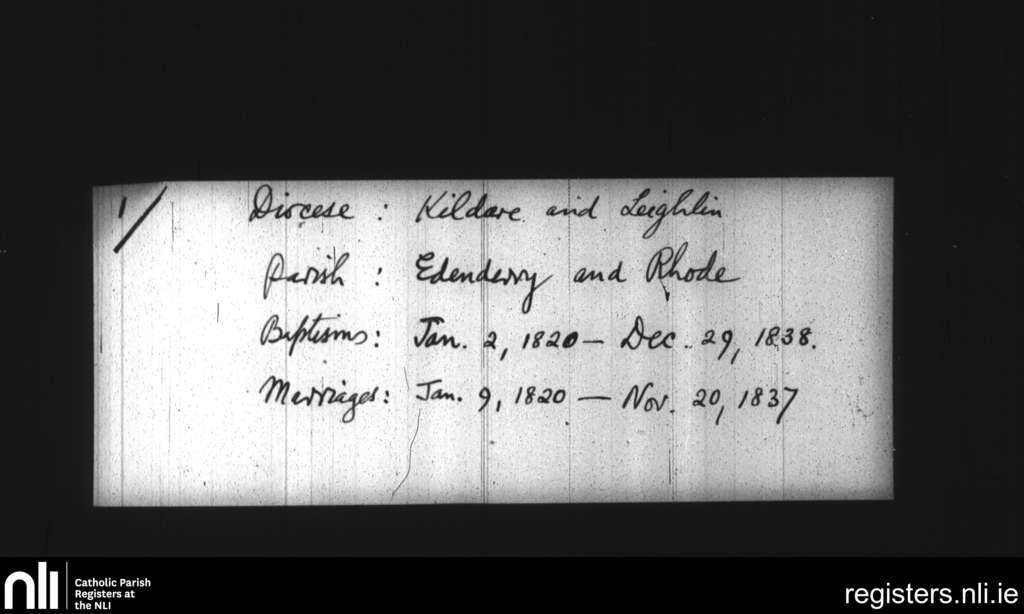 1/
Diocese : Kildare and Leighlin
Parish : Edenderry and Rhode
Baptisms : Jan. 2, 1820 — Dec. 29, 1838.
Marriages : Jan. 9, 1820 — Nov. 20, 1837
nli
Catholic Parish
Registers at
the NLI
registers.nli.ie